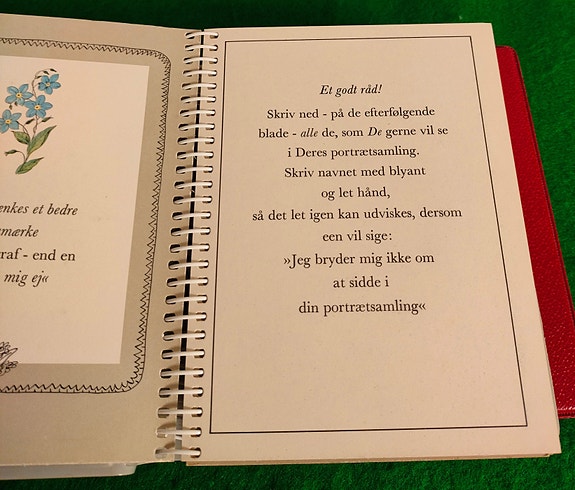 enkes et bedre
mærke
raf - end en
mig ej«
Et godt råd!
Skriv ned - på de efterfølgende
blade - alle de, som De gerne vil se
i Deres portrætsamling.
Skriv navnet med blyant
og let hånd,
så det let igen kan udviskes, dersom
een vil sige:
»Jeg bryder mig ikke om
at sidde i
din portrætsamling«